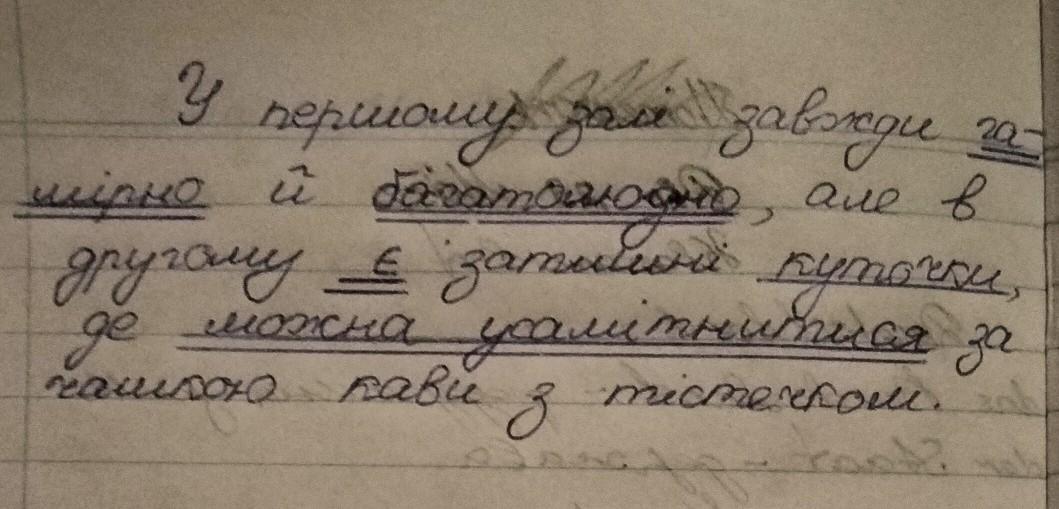 У першому залі завжди га-
мірно й багатолюдно, але в
другому є затишні куточки,
де можна усамітнитися за
чашкою кави з тістечком.